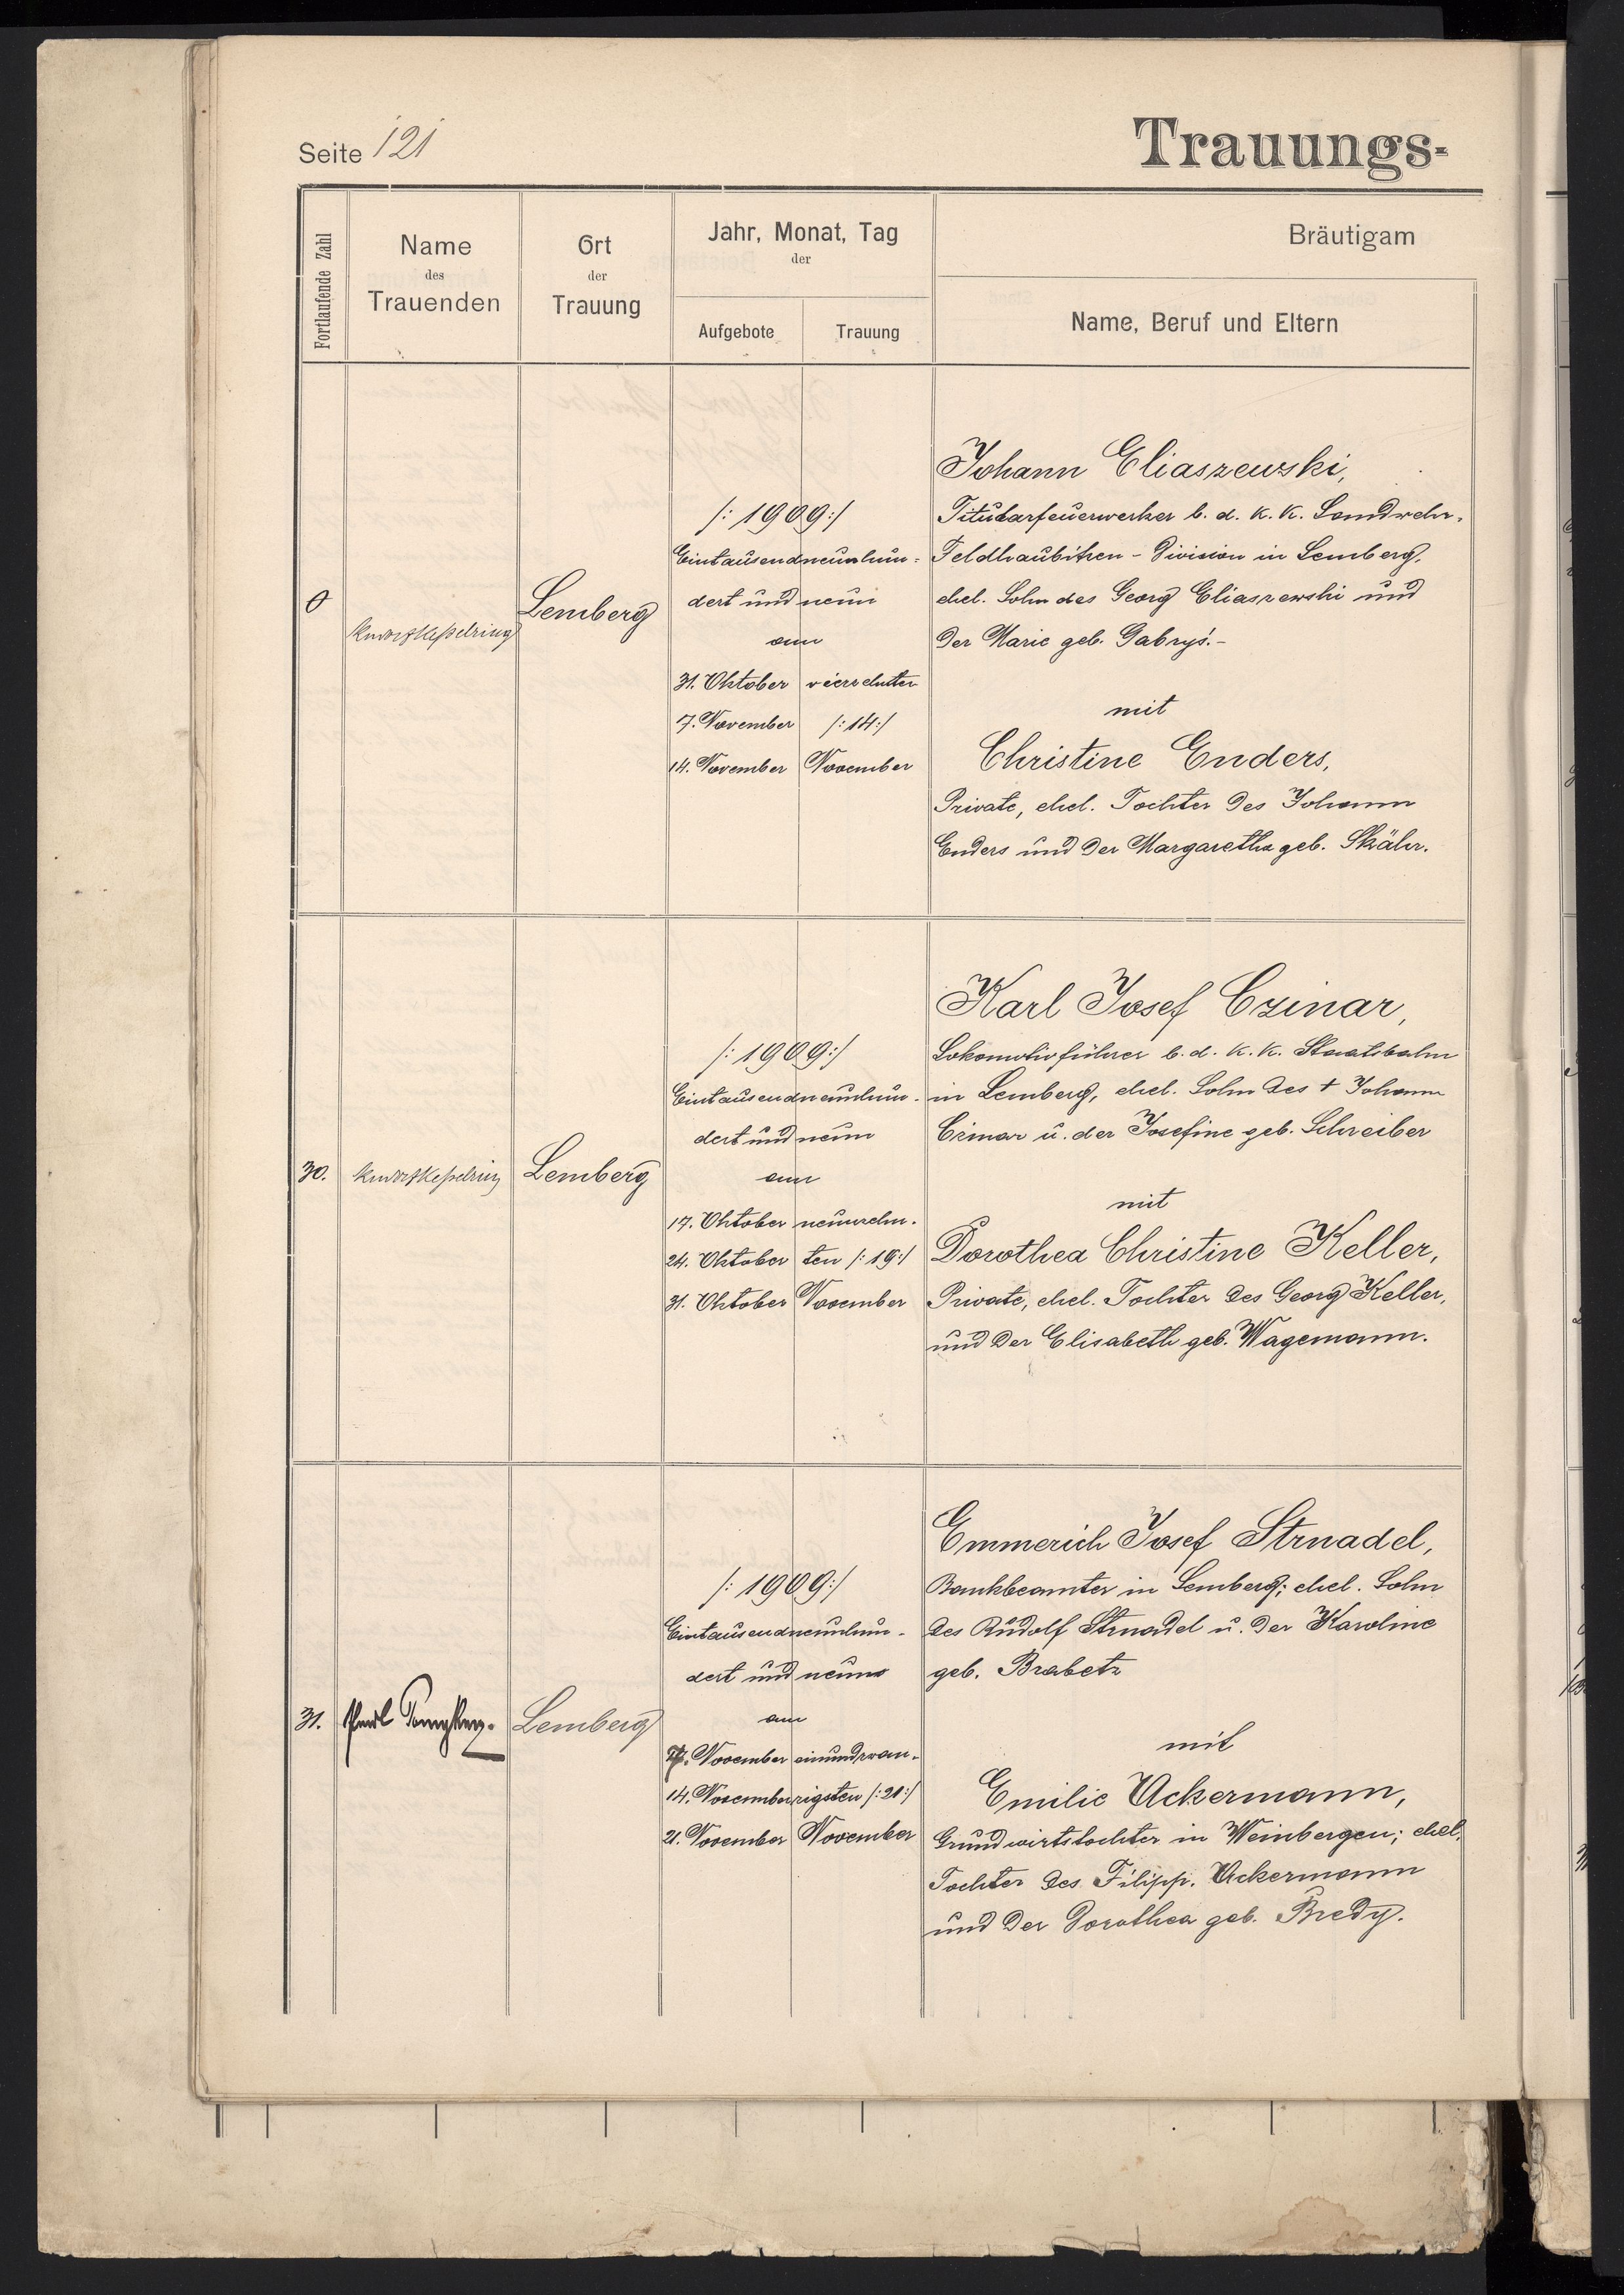 Seite 121
Trauungs-
Fortlaufende Zahl
Name
des
Trauenden
Ort
der
Trauung
Jahr, Monat, Tag
der
Aufgebote
Trauung
Bräutigam
Name, Beruf und Eltern
0
Lemberg
/: 1909 :/
Eintausendneunhun-
dert und neun
am
31. Oktober vierzehnten
7. November /: 14 :/
14. November November
Johann Eliaszewski,
Titularfeuerwerker b. d. k. k. Landwehr-
Feldhaubitzen - Division in Lemberg,
ehel. Sohn des Georg Eliaszewski und
der Marie geb. Gabryś. -
mit
Christine Enders,
Private, ehel. Tochter des Johann
Enders und der Margaretha geb. Skähr.
30.
Lemberg
/: 1909 :/
Eintausendneunhun-
dert und neun
am
17. Oktober neunzehn-
24. Oktober ten /: 19 :/
31. Oktober November
Karl Josef Czinar,
Lokomotivführer b. d. k. k. Staatsbahn
in Lemberg, ehel. Sohn des † Johann
Czinar u. der Josefine geb. Schreiber
mit
Dorothea Christine Keller,
Private, ehel. Tochter des Georg Keller,
und der Elisabeth geb. Wagemann.
31.
Lemberg
/: 1909 :/
Eintausendneunhun-
dert und neun
am
7. November einundzwan-
14. November zigsten /: 21 :/
21. November November
Emmerich Josef Strnadel,
Bankbeamter in Lemberg; ehel. Sohn
des Rudolf Strnadel u. der Karoline
geb. Brabetz
mit
Emilie Ackermann,
Grundwirtstochter in Weinbergen; ehel.
Tochter des Filipp. Ackermann
und der Dorothea geb. Bredy.